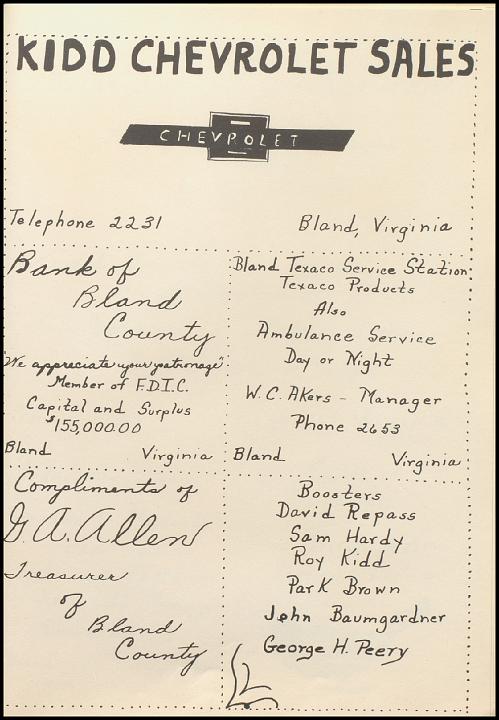 KIDD CHEVROLET SALES
CHEVROLET
Telephone 2231
Bland, Virginia
Bank of
Bland
County
"We appreciate your patronage"
Member of F.D.I.C.
Capital and Surplus
$155,000.00
Bland Virginia
Bland Texaco Service Station
Texaco Products
Also
Ambulance Service
Day or Night
W.C. Akers - Manager
Phone 2653
Bland Virginia
Compliments of
G.A. Allen
Treasurer
of
Bland
County
Boosters
David Repass
Sam Hardy
Roy Kidd
Park Brown
John Baumgardner
George H. Peery